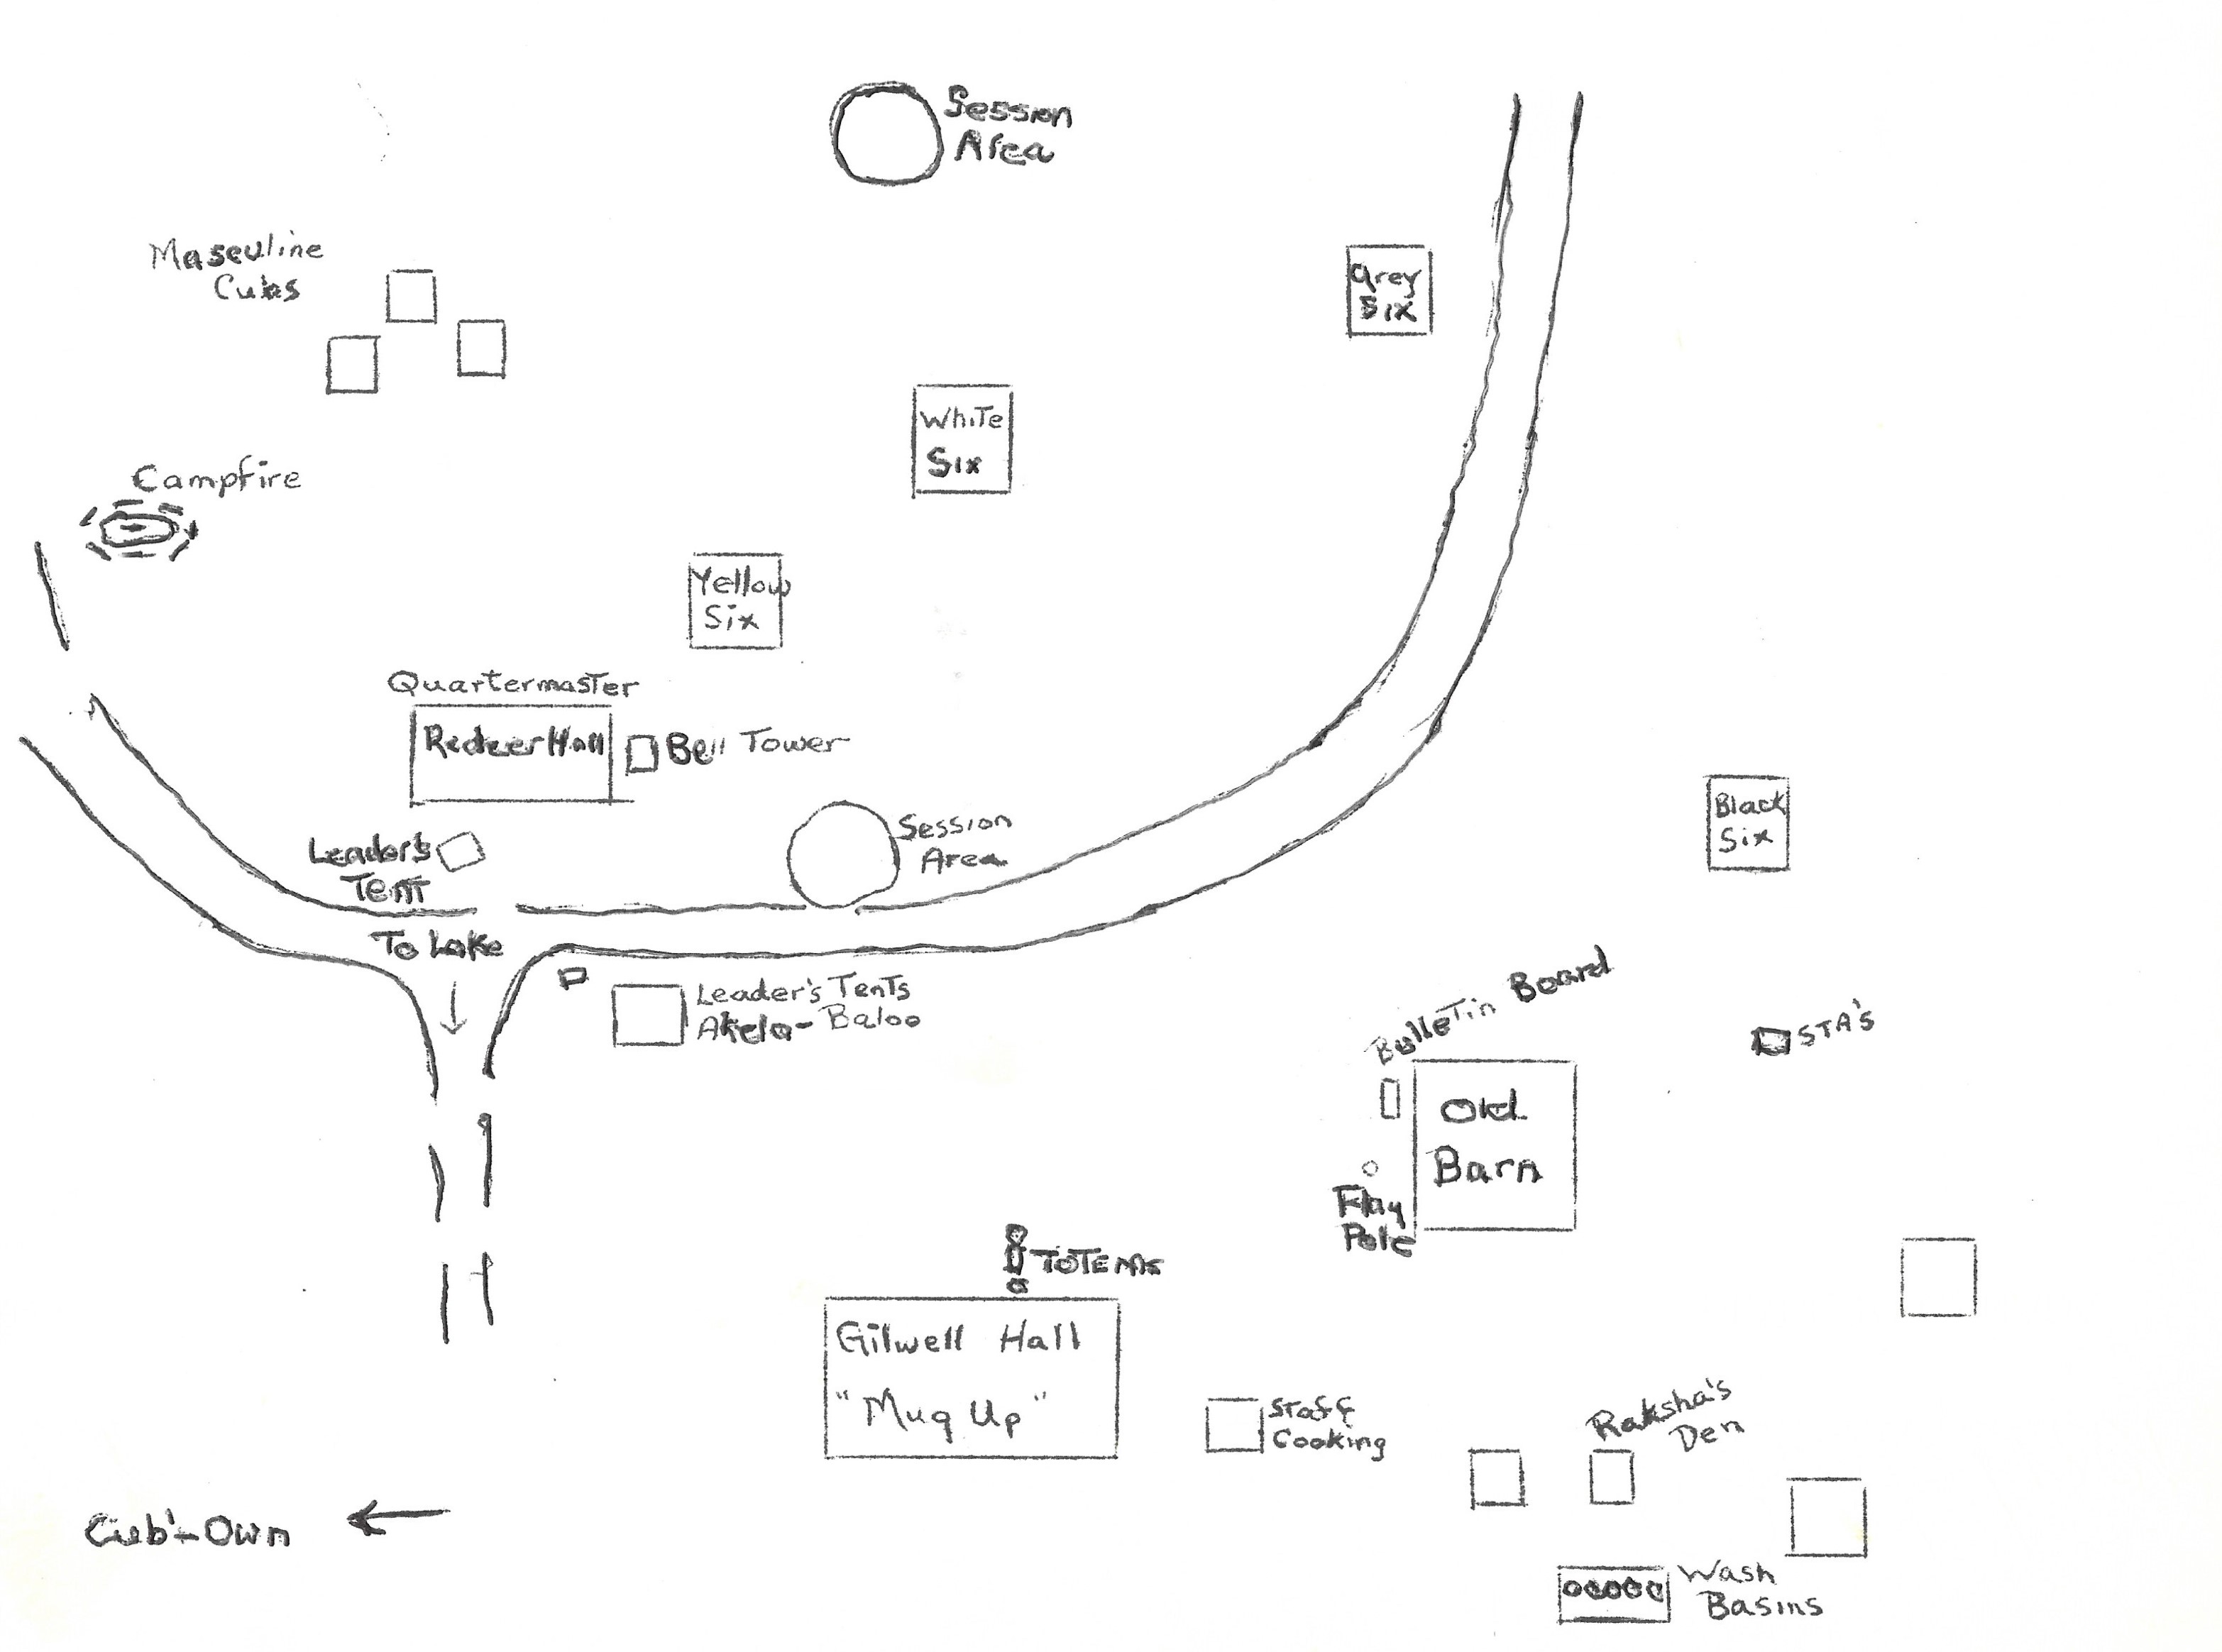 Session
Area
Masculine
Cubs
Grey
Six
White
Six
Campfire
Yellow
Six
Quartermaster
Hall
Bell Tower
Black
Six
Session
Area
Leader's
Tent
To Lake
Leader's Tents
Akela-Baloo
Bulletin Board
STA's
Old
Barn
Flag
Pole
TOTEMS
Gilwell Hall
"Mug Up"
Staff
Cooking
Raksha's
Den
Cub'-Own
Wash
Basins